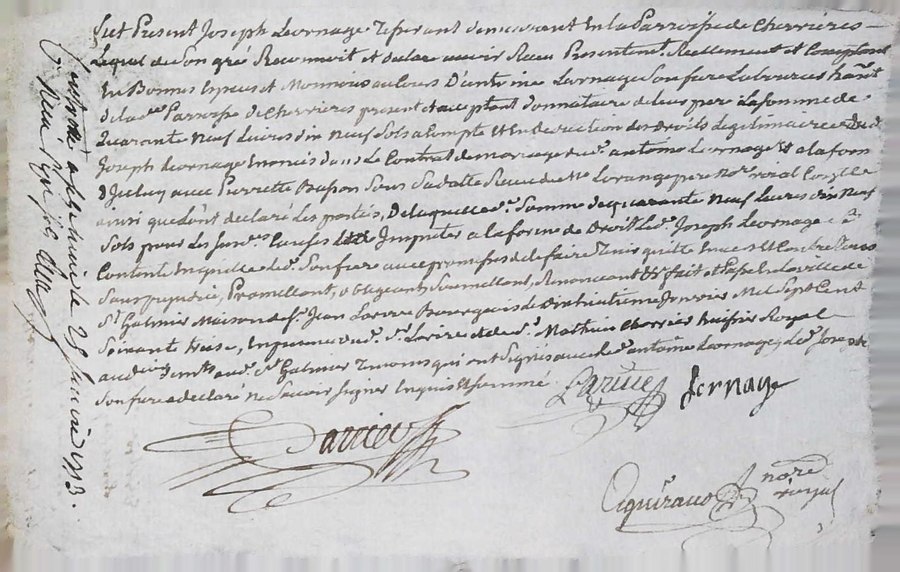 fut Present Joseph Lornage Tisserant demeurant En la Parroisse de Cherrières
Lequel de Son gré Reconnoit et declare avoir Receu Presentemt. Reellement et Comptant
En Bonnes Especes et Monnoies au cours D'antoine Lornage Son frere Laboureur hant.
de lad. Parroisse de Cherrières present et acceptant donnataire de leur pere la somme de
quarante Neuf Livres dix Neuf Sols a Compte et En deduction des droits legitimaires dud.
Joseph Lornage Enoncés dans Le Contrat de mariage dud. antoine Lornage et a la forme
D'Iceluy avec Pierrette Buffon Sous Sa datte Receu de Me Lorange pere Nore. royal
ainsi que l'ont declaré Les parties, De laquelle de. Somme de quarante Neuf Livres dix Neuf
Sols pour Les Susd. Causes Imputer a la forme de Droit Led. Joseph Lornage
Content En quitte led. Son frere avec promesse de le faire Tenir quitte Envers et Contre Tous
Sans prejudice, Promettant, obligeant, Soumettant, Renonçant &c fait et Passé En la ville de
St. Galmier Maison de Sr. Jean Larive Bourgeois Le dixhuitieme Janvier Mil Sept Cent
Soixante treize, En presence dud. Sr. Larive et de Sr. Mathieu Huissier Royal
aud. St. Galmier Temoins qui ont Signés avec led. antoine Lornage, led. Joseph
Son frere a declaré Ne Savoir Signer Enquis et Sommé
Larive Lornage
nore
royal
Controllé a St. Galmier le 25 janvier 1773.
Receu